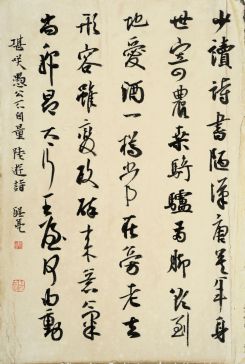 少讀詩書陋漢唐莫年身
世寄農桑騎驢兩脚欲到
地愛酒一樽常在旁老去
形容雖變改醉來意氣
尚軒昂太行王屋何由動
堪咲愚公不自量 陸游詩